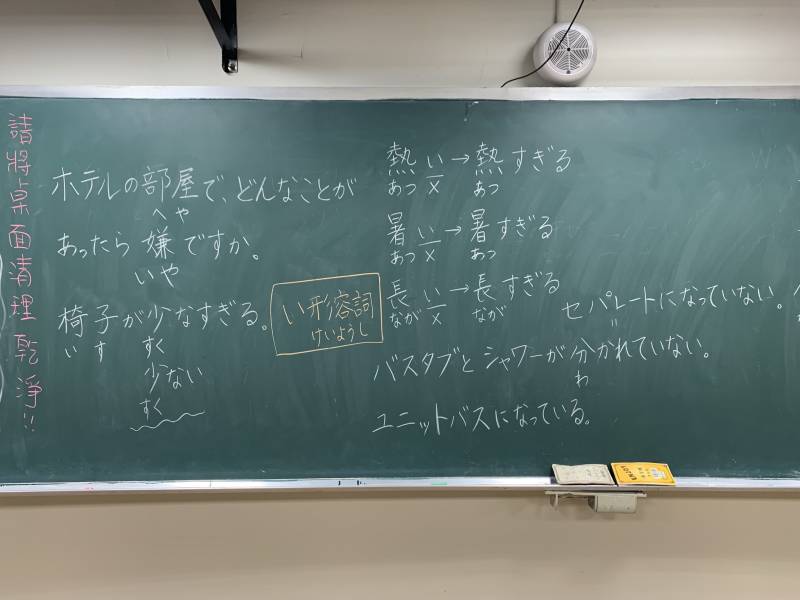 請將桌面清理乾淨!!
ホテルの部屋で、どんなことが
へや
あったら嫌ですか。
いや
椅子が少なすぎる。
いす
すく
少ない
すく
い形容詞
けいようし
熱い→熱すぎる
あつ×
あつ
暑い→暑すぎる
あつ×
あつ
長い→長すぎる
なが×
なが
セパレートになっていない。
〃
バスタブとシャワーが分かれていない。
わ
ユニットバスになっている。